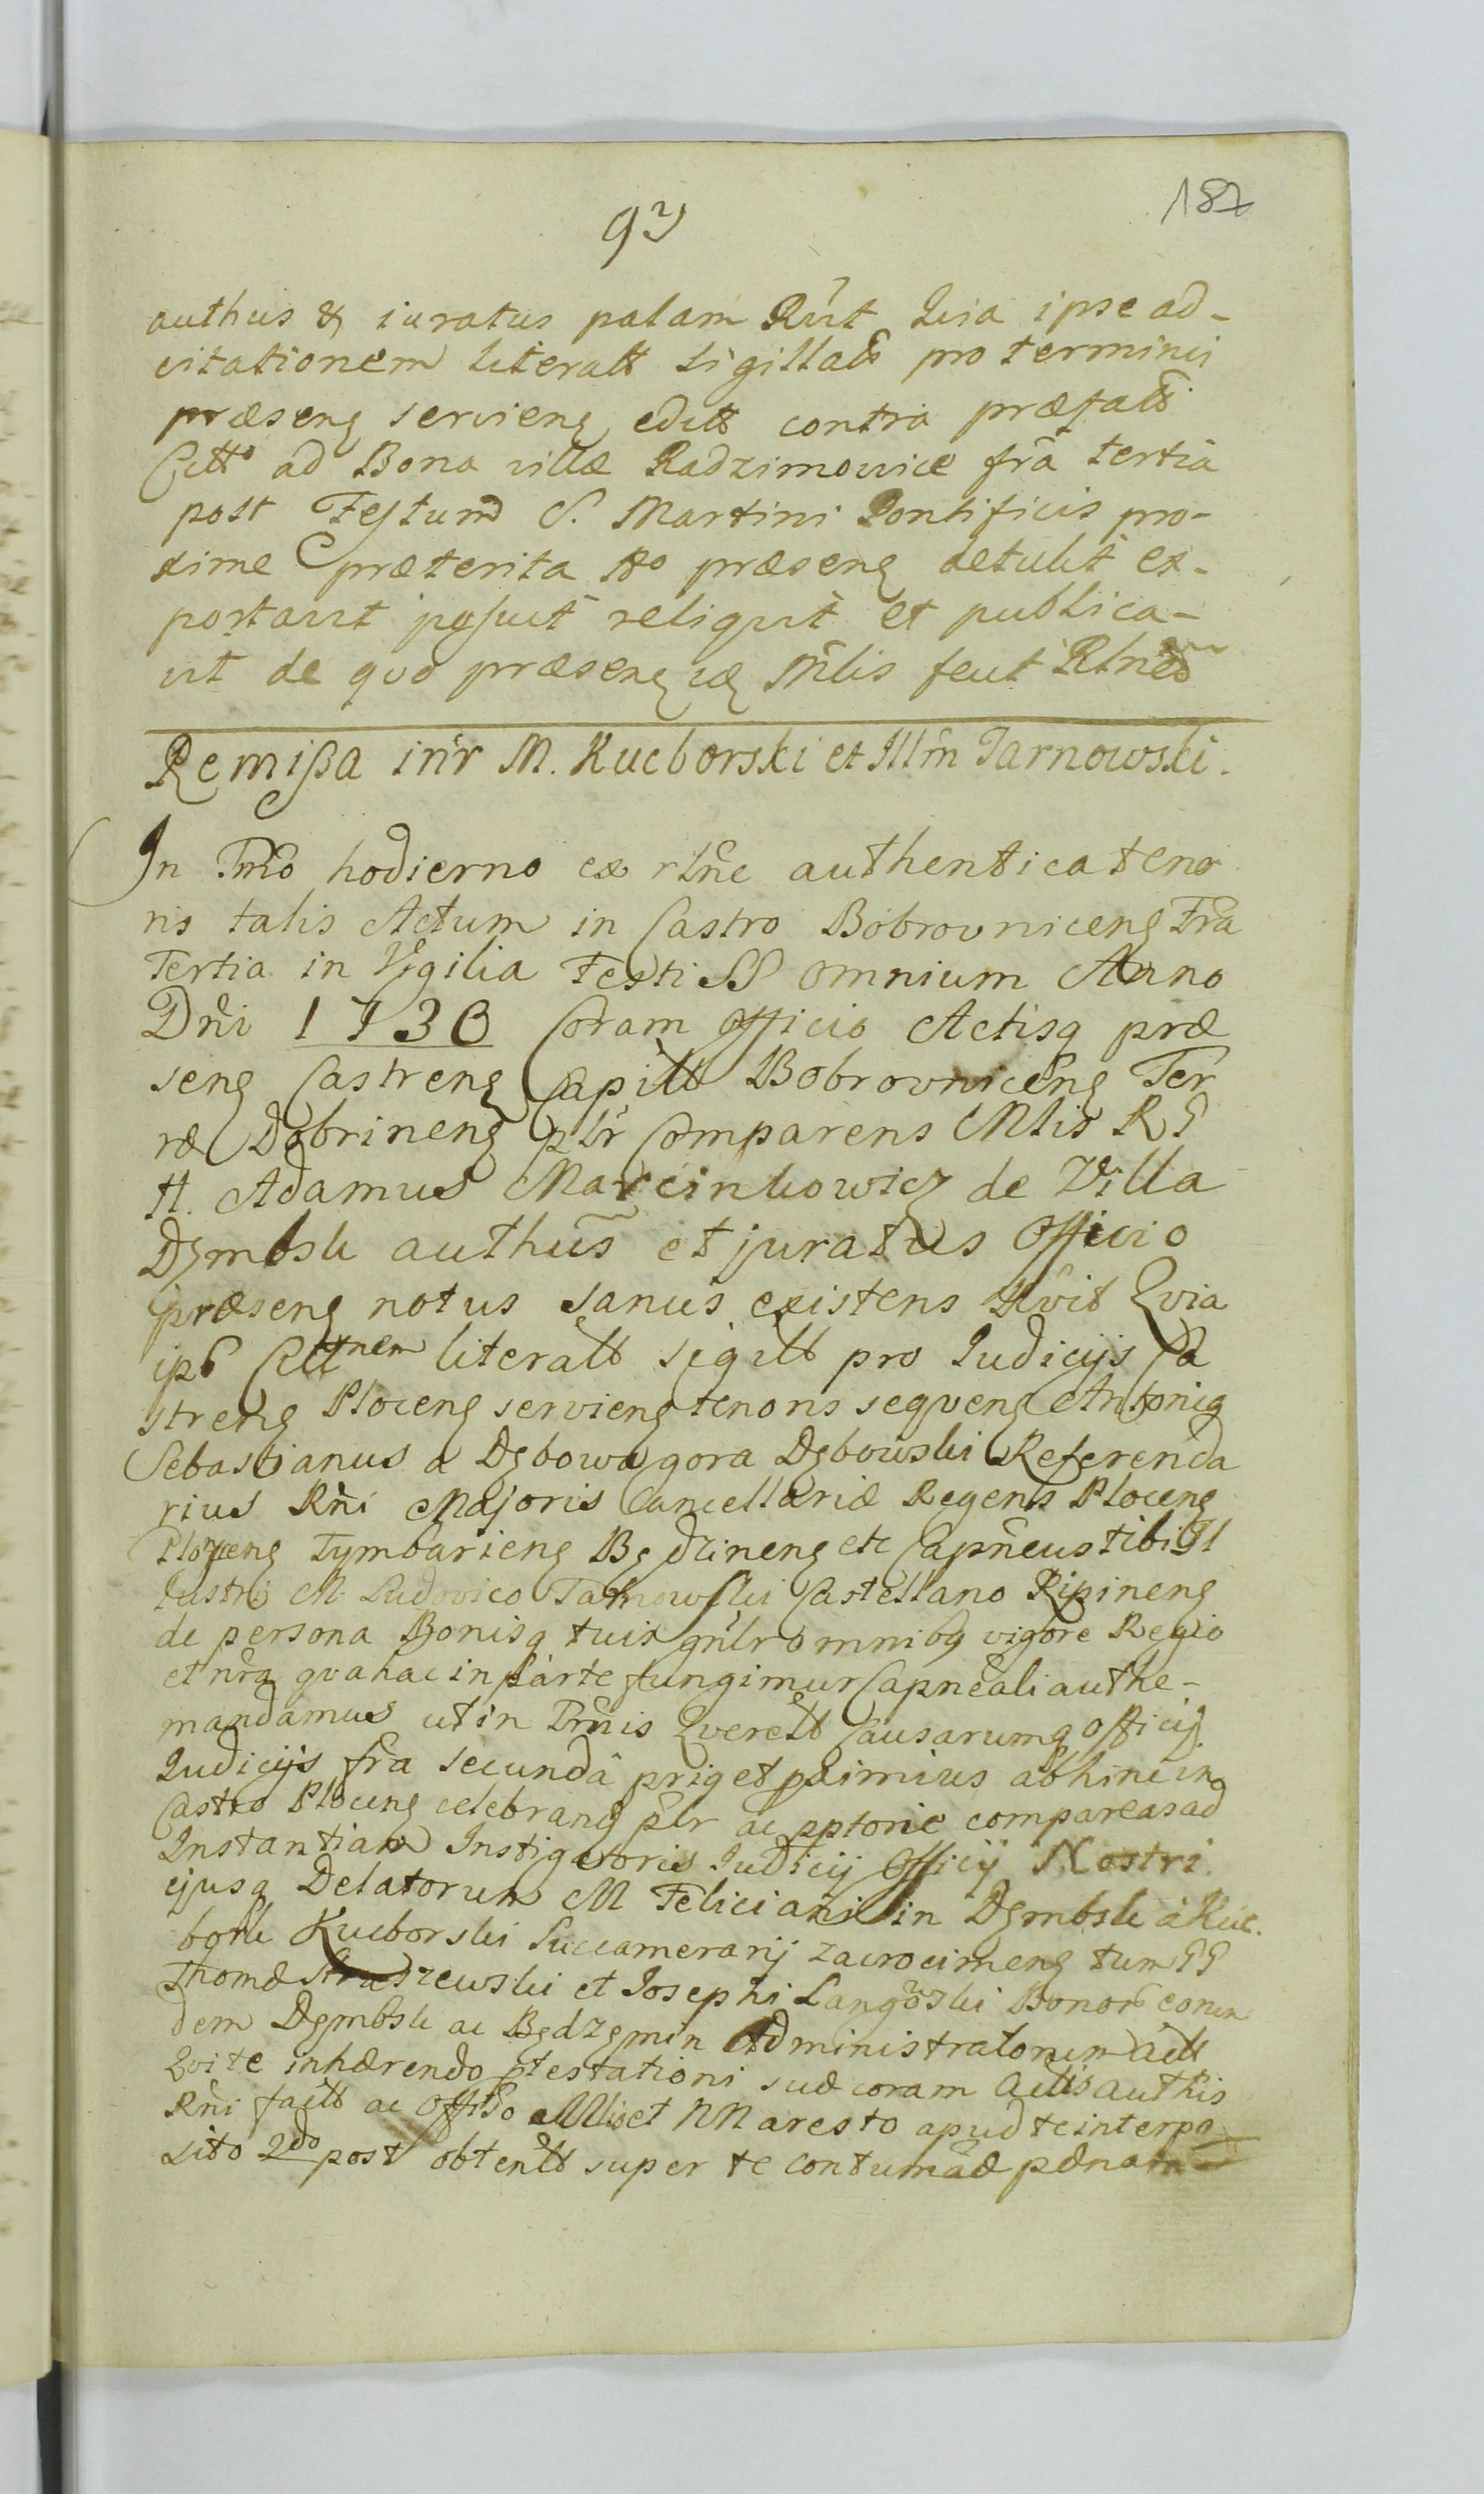 187
93
authus & iuratus palam Rñt Quia ipse ad-
citationem literalt sigillatt pro termini
præseng servieng editt contra præfatt
Citt° ad Bona villæ Radzimowice frâ tertia
post Festum S. Martini Pontificis pro-
xime præterita A° præseng detulit ex-
portavit posuit reliquit et publica-
vit de quo præseng Mlis fecit Rlnem
Remißa in'r M. Kucborski et Illm Tarnowski.
In Tmo hodierno ex rlne authentica teno
ris talis Actum in Castro Bobrovniceng Fra
Tertia in Vigilia Festi SS omnium Anno
Dni 1730 Coram Officio Actisq præ
seng Castreng Capitt Bobrovniceng Ter
ræ Dobrineng plr Comparens Mlis R P
H. Adamus Marcinkowicz de Villa
Dęmbsk authus et juratus Officio
præseng notus sanus existens Rvit Qvia
ips Cittnem literalt sigitt pro Iudicijs Ca
streng Ploceng servieng tenoris seqveng Antonig
Sebastianus a Dębowa gora Dębowski Referenda
rius Rñi Majoris Cancellariæ Regens Ploceng
Ploceng Tymbarieng Będzineng etc Capñeus tibi Il
lustri M. Ludovico Tarnowski Castellano Ripineng
de persona Bonisq tuis gnlr omnibq vigore Regio
et nra qva hac in parte fungimur Capneali authe-
mandamus ut in Trñis Qverelt Causarumq Officij
Iudicijs fra secundâ priq et primius abhinc in
Castro Ploceng celebrang plr ac pptorie compareas ad
Instantiam Instigatoris Iudicij Officij Nostri
ejusq Delatorum M Feliciani in Dęmbsk â Kuc.
bork Kucborski Succamerarij zacrocimeng tum PP
Thomæ et Iosephi Langowski Bonor eorun
dem Dęmbsk ac Będzęmin Administratorum actt
Qvi te inhærendo ptestationi suæ coram actis authis
Rñi factt ac Offiso Mliset NN aresto apud te interpo
sito 2do post obtentt super te contumaæ pænam